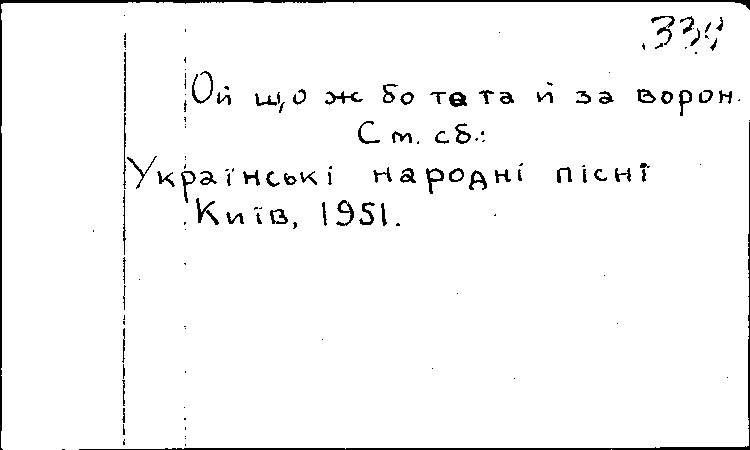 Ой що ж бо та та й за ворон.
См. сб.:
Українські народні пісні
Київ, 1951.